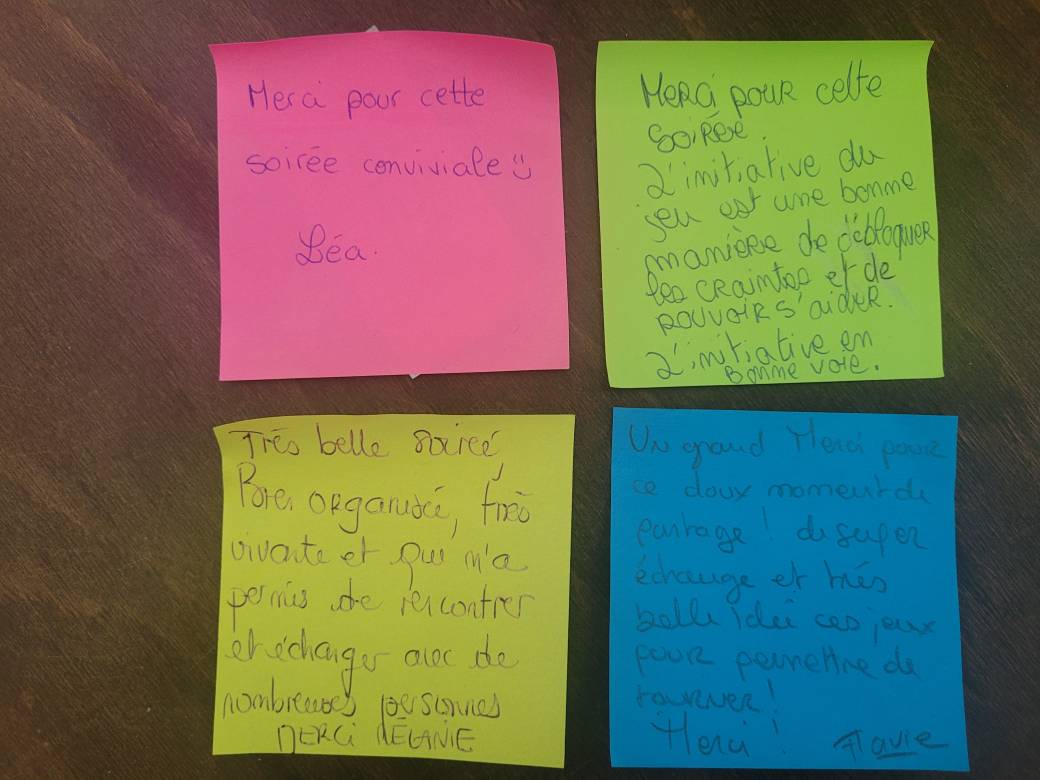 Merci pour cette
soirée conviviale
Léa.
Merci pour cette
soirée.
L'initiative du
jeu est une bonne
manière de débloquer
les craintes et de
pouvoir s'aider.
L'initiative en
bonne voie.
Très belle soireé,
organisée, très
vivante et qui m'a
permis de rencontrer
et échanger avec de
nombreuses personnes
MERCi MÉLANIE
Un grand Merci pour
ce doux moment de
partage ! de super
échange et très
belle idée ces jeux
pour permettre de
tourner !
Merci ! Flavie